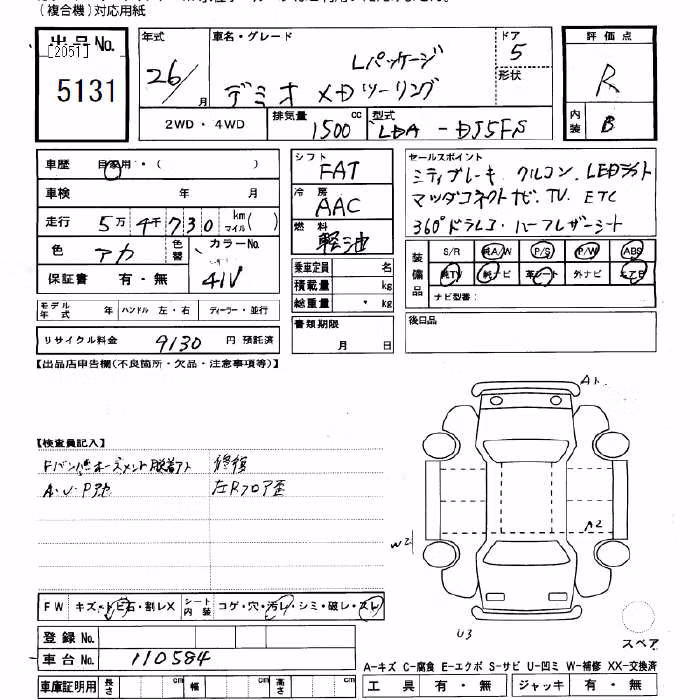 (複合機)対応用紙
出品No.
[2051]
5131
年式
26/月
車名・グレード
Lパッケージ
デミオ XDツーリング
ドア
5
形状
2WD・4WD
排気量
1500 cc
型式
LDA-DJ5FS
評価点
R
内装
B
車歴 自家用・( )
車検 年 月
走行 5万4千730 km マイル( )
色 アカ
色替
カラーNo.
41V
保証書 有・無
シフト
FAT
冷房
AAC
燃料
軽油
乗車定員 名
積載量 kg
総重量 kg
書類期限
月 日
セールスポイント
シティブレーキ、クルコン、LEDライト
マツダコネクトナビ、TV、ETC
360°ドラレコ・ハーフレザーシート
装備品
S/R 純A/W P/S P/W ABS
純TV 純ナビ 革シート 外ナビ エアB
ナビ型番:
後日品
モデル年式 年 ハンドル 左・右 ディーラー・並行
リサイクル料金 9130 円 預託済
【出品店申告欄(不良箇所・欠品・注意事項等)】
【検査員記入】
修復
A・U・P
左Rフロア歪
A1
A2
W2
U3
スペア
FW キズ・トビ石・割レX
シート内装 コゲ・穴・汚レ・シミ・破レ・スレ
登録No.
車台No. 110584
車庫証明用 長さ cm 幅 cm 高さ cm
A-キズ C-腐食 E-エクボ S-サビ U-凹ミ W-補修 XX-交換済
工具 有・無 ジャッキ 有・無